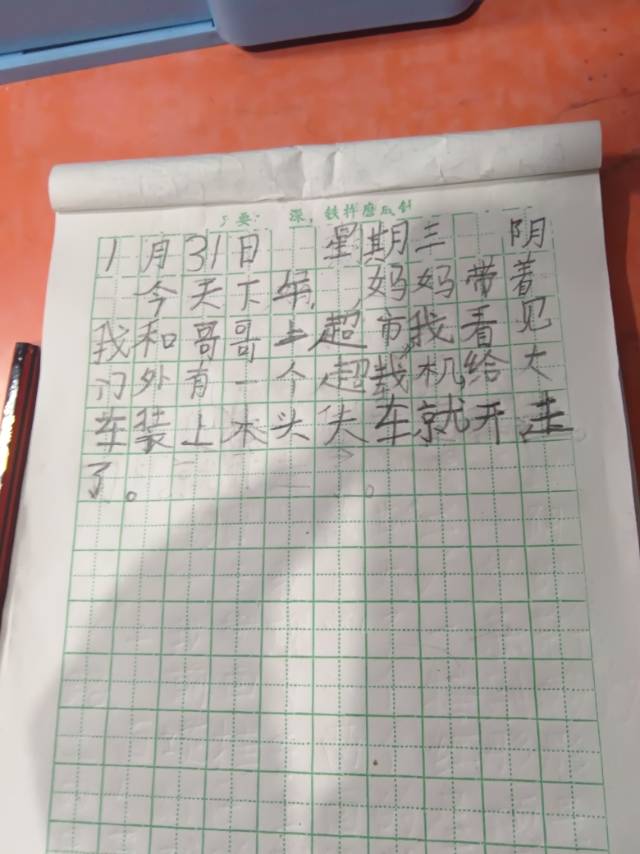 深，铁杵磨成针
1月31日 星期三 阴
今天下午，妈妈带着
我和哥哥上超市我看见
门外有一个超载机给大
车装上木头大车就开走
了。